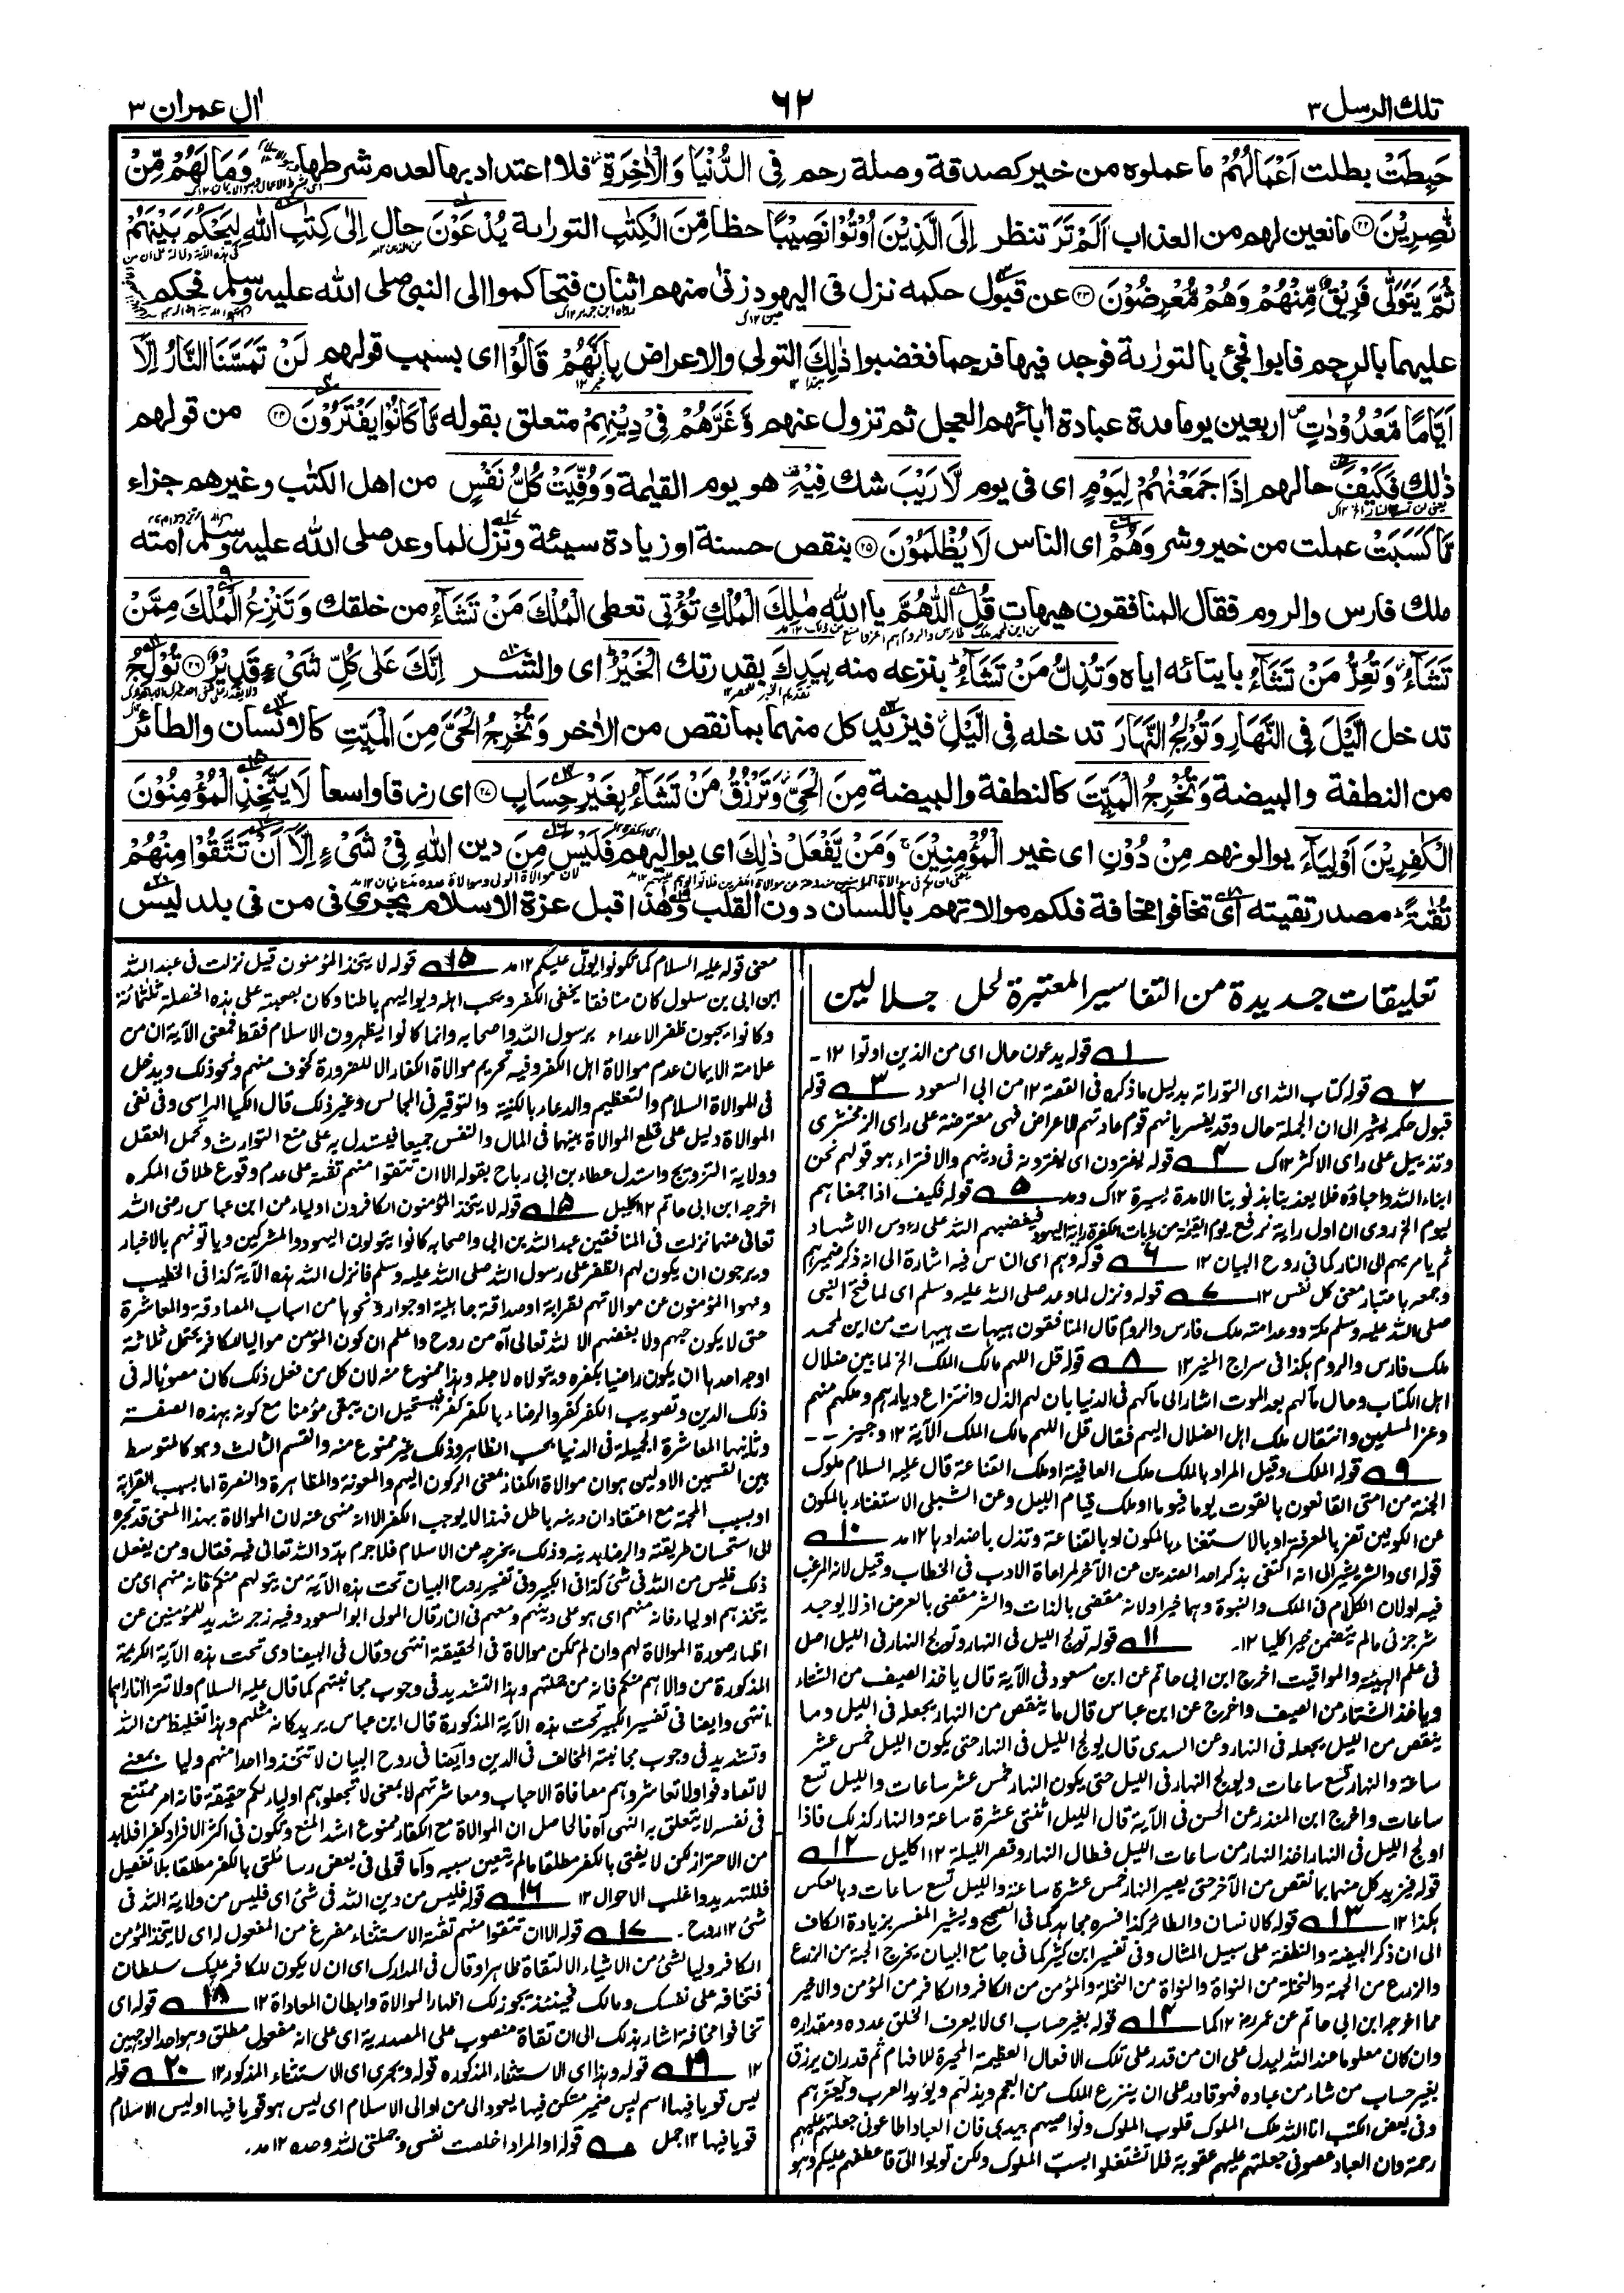 تلك الرسل ٣
٦٢
اٰل عمران ٣
حَبِطَتْ بطلت اَعْمَالُهُمْ ما عملوه من خير كصدقة وصلة رحم فِى الدُّنْيَا وَالْاٰخِرَةِ فلا اعتداد بها لعدم شرطها وَمَا لَهُمْ مِّنْ
نّٰصِرِيْنَ ۝٢٢ مانعين لهم من العذاب اَلَمْ تَرَ تنظر اِلَى الَّذِيْنَ اُوْتُوْا نَصِيْبًا حظا مِّنَ الْكِتٰبِ التورىة يُدْعَوْنَ حال اِلٰى كِتٰبِ اللّٰهِ لِيَحْكُمَ بَيْنَهُمْ
ثُمَّ يَتَوَلّٰى فَرِيْقٌ مِّنْهُمْ وَهُمْ مُّعْرِضُوْنَ ۝٢٣ عن قبول حكمه نزل فى اليهود زنى منهم اثنان فتحاكموا الى النبى صلى الله عليه وسلم فحكم
عليهما بالرجم فابوا فجئ بالتورٰىة فوجد فيها فرجما فغضبوا ذٰلِكَ التولى والاعراض بِاَنَّهُمْ قَالُوْا اى بسبب قولهم لَنْ تَمَسَّنَا النَّارُ اِلَّآ
اَيَّامًا مَّعْدُوْدٰتٍ اربعين يوما مدة عبادة اٰبائهم العجل ثم تزول عنهم وَّغَرَّهُمْ فِىْ دِيْنِهِمْ متعلق بقوله مَّا كَانُوْا يَفْتَرُوْنَ ۝٢٤ من قولهم
ذٰلك فَكَيْفَ حالهم اِذَا جَمَعْنٰهُمْ لِيَوْمٍ اى فى يوم لَّا رَيْبَ شك فِيْهِ هو يوم القيٰمة وَوُفِّيَتْ كُلُّ نَفْسٍ من اهل الكتٰب وغيرهم جزاء
مَّا كَسَبَتْ عملت من خير وشر وَهُمْ اى الناس لَا يُظْلَمُوْنَ ۝٢٥ بنقص حسنة او زيادة سيئة ونزل لما وعد صلى الله عليه وسلم امته
ملك فارس والروم فقال المنافقون هيهات قُلِ اللّٰهُمَّ يا الله مٰلِكَ الْمُلْكِ تُؤْتِى تعطى الْمُلْكَ مَنْ تَشَآءُ من خلقك وَتَنْزِعُ الْمُلْكَ مِمَّنْ
تَشَآءُ وَتُعِزُّ مَنْ تَشَآءُ بايتائه اياه وَتُذِلُّ مَنْ تَشَآءُ بنزعه منه بِيَدِكَ بقدرتك الْخَيْرُ اى والشر اِنَّكَ عَلٰى كُلِّ شَىْءٍ قَدِيْرٌ ۝٢٦ تُوْلِجُ
تدخل الَّيْلَ فِى النَّهَارِ وَتُوْلِجُ النَّهَارَ تدخله فِى الَّيْلِ فيزيد كل منهما بما نقص من الاٰخر وَتُخْرِجُ الْحَىَّ مِنَ الْمَيِّتِ كالانسان والطائر
من النطفة والبيضة وَتُخْرِجُ الْمَيِّتَ كالنطفة والبيضة مِنَ الْحَىِّ وَتَرْزُقُ مَنْ تَشَآءُ بِغَيْرِ حِسَابٍ ۝٢٧ اى رزقا واسعا لَا يَتَّخِذِ الْمُؤْمِنُوْنَ
الْكٰفِرِيْنَ اَوْلِيَآءَ يوالونهم مِنْ دُوْنِ اى غير الْمُؤْمِنِيْنَ وَمَنْ يَّفْعَلْ ذٰلِكَ اى يواليهم فَلَيْسَ مِنَ دين اللّٰهِ فِىْ شَىْءٍ اِلَّآ اَنْ تَتَّقُوْا مِنْهُمْ
تُقٰىةً مصدر تقيته اى تخافوا مخافة فلكم موالاتهم باللسان دون القلب وهذا قبل عزة الاسلام ويجرى فى من فى بلد ليس
تعليقات جديدة من التفاسير المعتبرة لحل جلالين
١ قوله يدعون حال اى من الذين اوتوا ١٢ -
٢ قوله كتاب الله اى التوراة بدليل ما ذكره فى القصة ١٢ من ابى السعود ٣ قوله
قبول حكمه يشير الى ان الجملة حال وقد يفسر بانهم قوم عادتهم الاعراض فهى معترضة على راى الزمخشرى
وتذييل على راى الاكثر ١٢ك ٤ قوله يفترون اى يفترونه فى دينهم والافتراء هو قولهم نحن
ابناء الله واحباؤه فلا يعذبنا بذنوبنا الا مدة يسيرة ١٢ك ومد ٥ قوله فكيف اذا جمعناهم
ليوم الخ روى ان اول راية ترفع يوم القيمة من رايات الكفرة راية اليهود فيفضحهم الله على رءوس الاشهاد
ثم يامر بهم الى النار كما فى روح البيان ١٢ ٦ قوله وهم اى الناس فيه اشارة الى انه ذكر ضميرهم
وجمعه باعتبار معنى كل نفس ١٢ ٧ قوله ونزل لما وعد صلى الله عليه وسلم اى لما فتح النبى
صلى الله عليه وسلم مكة ووعد امته ملك فارس والروم قال المنافقون هيهات هيهات من اين لمحمد
ملك فارس والروم بكذا فى سراج المنير ١٢ ٨ قوله قل اللهم مالك الملك الخ لما بين ضلال
اهل الكتاب ومآل مآلهم بعد الموت اشار الى مآلهم فى الدنيا بان لهم الذل وانتزاع ديارهم وملكهم منهم
وعز المسلمين وانتقال ملك اهل الضلال اليهم فقال قل اللهم مالك الملك الآية ١٢ وجيز - -
٩ قوله الملك وقيل المراد بالملك ملك العافية او ملك القناعة قال عليه السلام ملوك
الجنة من امتى القانعون بالقوت يوما فيوما او ملك قيام الليل وعن الشبلى الاستغناء بالمكون
عن الكونين تعز بالمعرفة او بالاستغناء بالمكون او بالقناعة وتذل باضدادها ١٢ مد ١٠
قوله اى والشر يشير الى انه اكتفى بذكر احد الضدين من الآخر لمراعاة الادب فى الخطاب وقيل لانه المرغب
فيه او لان الكلام فى الملك والنبوة وهما خير او لانه مقضى بالذات والشر مقضى بالعرض اذ لا يوجد
شر جزئى ما لم يتضمن خيرا كليا ١٢ - ١١ قوله تولج الليل فى النهار وتولج النهار فى الليل اصل
فى علم الهيئة والمواقيت اخرج ابن ابى حاتم عن ابن مسعود فى الآية قال ياخذ الصيف من الشتاء
وياخذ الشتاء من الصيف واخرج عن ابن عباس قال ما ينقص من النهار يجعله فى الليل وما
ينقص من الليل يجعله فى النهار وعن السدى قال يولج الليل فى النهار حتى يكون الليل خمس عشر
ساعة والنهار تسع ساعات ويولج النهار فى الليل حتى يكون النهار خمس عشر ساعات والليل تسع
ساعات واخرج ابن المنذر عن الحسن فى الآية قال الليل اثنتى عشرة ساعة والنهار كذلك فاذا
اولج الليل فى النهار اخذ النهار من ساعات الليل فطال النهار وقصر الليلة ١٢ اكليل ١٢
قوله فيزيد كل منهما بما نقص من الآخر حتى يصير النهار خمس عشرة ساعة والليل تسع ساعات وبالعكس
هكذا ١٢ ١٣ قوله كالانسان والطائر كذا فسره مجاهد كما فى الصحيح ويشير المفسر بزيادة الكاف
الى ان ذكر البيضة والنطفة على سبيل المثال وفى تفسير ابن كثير كما فى جامع البيان يخرج الحبة من الزرع
والزرع من الحبة والنخلة من النواة والنواة من النخلة والمؤمن من الكافر والكافر من المؤمن والاخير
مما اخرجه ابن ابى حاتم عن عمر رض ١٢ كما ١٤ قوله بغير حساب اى لا يعرف الخلق عدده ومقداره
وان كان معلوما عند الله ليدل على ان من قدر على تلك الافعال العظيمة المحيرة للافهام ثم قدر ان يرزق
بغير حساب من شاء من عباده فهو قادر على ان ينزع الملك من العجم ويذلهم ويؤتيه العرب ويعزهم
وفى بعض الكتب انا الله ملك الملوك قلوب الملوك ونواصيهم بيدى فان العباد اطاعونى جعلتهم عليهم
رحمة وان العباد عصونى جعلتهم عليهم عقوبة فلا تشتغلوا بسب الملوك ولكن توبوا الىّ اعطفهم عليكم وهو
معنى قوله عليه السلام كما تكونوا يولّى عليكم ١٢ مد ١٥ قوله لا يتخذ المؤمنون قيل نزلت فى عبد الله
ابن ابى بن سلول كان منافقا يخفى الكفر ويحب اهله ويواليهم باطنا وكان بصحبته على هذه الخصلة ثلثمائة
وكانوا يحبون ظفر الاعداء برسول الله واصحابه وانما كانوا يظهرون الاسلام فقط فمعنى الآية ان من
علامة الايمان عدم موالاة اهل الكفر وفيه تحريم موالاة الكفار الا للضرورة كخوف منهم ونحو ذلك ويدخل
فى الموالاة السلام والتعظيم والدعاء بالكنية والتوقير فى المجالس وغير ذلك قال الكيا الراسى وفى نفى
الموالاة دليل على قطع الموالاة بينهما فى المال والنفس جميعا فيستدل به على منع التوارث وتحمل العقل
وولاية التزويج واستدل عطاء بن ابى رباح بقوله الا ان تتقوا منهم تقىة على عدم وقوع طلاق المكره
اخرجه ابن ابى حاتم ١٢ اكليل ١٥ قوله لا يتخذ المؤمنون الكافرون اولياء من ابن عباس رضى الله
تعالى عنهما نزلت فى المنافقين عبد الله بن ابى واصحابه كانوا يتولون اليهود والمشركين وياتونهم بالاخبار
ويرجون ان يكون لهم الظفر على رسول الله صلى الله عليه وسلم فانزل الله هذه الآية كذا فى الخطيب
ونهوا المؤمنون عن موالاتهم لقرابة او صداقة جاهلية او جوار ونحوها من اسباب المصادقة والمعاشرة
حتى لا يكون حبهم ولا بغضهم الا لله تعالى اه من روح واعلم ان كون المؤمن مواليا للكافر يحتمل ثلاثة
اوجه احدها ان يكون راضيا بكفره ويتولاه لاجله وهذا ممنوع منه لان كل من فعل ذلك كان مصوبا له فى
ذلك الدين وتصويب الكفر كفر والرضاء بالكفر كفر فيستحيل ان يبقى مؤمنا مع كونه بهذه الصفة
وثانيها المعاشرة الجميلة فى الدنيا بحسب الظاهر وذلك غير ممنوع منه والقسم الثالث وهو كالمتوسط
بين القسمين الاولين هو ان موالاة الكفار بمعنى الركون اليهم والمعونة والمظاهرة والنصرة اما بسبب القرابة
او بسبب المحبة مع اعتقاد ان دينه باطل فهذا لا يوجب الكفر الا انه منهى عنه لان الموالاة بهذا المعنى قد تجره
الى استحسان طريقته والرضا بدينه وذلك يخرجه من الاسلام فلا جرم هدد الله تعالى فيه فقال ومن يفعل
ذلك فليس من الله فى شئ كذا فى الكبير وفى تفسير روح البيان تحت هذه الآية من يتولهم منكم فانه منهم اى من
يتخذهم اولياء فانه منهم اى هو على دينهم ومعهم فى النار قال المولى ابو السعود وفيه زجر شديد للمؤمنين عن
اظهار صورة الموالاة لهم وان لم تكن موالاة فى الحقيقة انتهى وقال فى البيضاوى تحت هذه الآية الكريمة
المذكورة من والاهم منكم فانه من جملتهم وهذا التشديد فى وجوب مجانبتهم كما قال عليه السلام ولا تترااى ناراهما
انتهى وايضا فى تفسير الكبير تحت هذه الآية المذكورة قال ابن عباس يريد كانه مثلهم وهذا تغليظ من الله
وتشديد فى وجوب مجانبة المخالف فى الدين وايضا فى روح البيان لا تتخذوا احدا منهم وليا بمعنى
لا تصادفوا ولا تعاشروهم مصافاة الاحباب ومعاشرتهم لا بمعنى لا تجعلوهم اولياء لكم حقيقة فانه امر ممتنع
فى نفسه لا يتعلق به النهى اه فالحاصل ان الموالاة مع الكفار ممنوع اشد المنع وتكون فى اكثر الافراد كفرا فلابد
من الاحتراز لكن لا يفتى بالكفر مطلقا ما لم يتعين سببه واما قولى فى بعض رسائلى بالكفر مطلقا بلا تفصيل
فللتهديد واغلب الاحوال ١٢ ١٦ قوله فليس من دين الله فى شئ اى فليس من ولاية الله فى
شئ ١٢ روح - ١٧ قوله الا ان تتقوا منهم تقىة الاستثناء مفرغ من المفعول له اى لا يتخذ المؤمن
الكافر وليا لشئ من الاشياء الا لتقاة ظاهرا وقال فى المدارك اى ان لا يكون للكافر عليك سلطان
فتخافه على نفسك ومالك فحينئذ يجوز لك اظهار الموالاة وابطان المعاداة ١٢ ١٨ قوله اى
تخافوا مخافة اشار بذلك الى ان تقاة منصوب على المصدرية اى على انه مفعول مطلق وهو احد الوجهين
١٢ ١٩ قوله وهذا اى الاستثناء المذكوره قوله ويجرى اى الاستثناء المذكور ١٢ ٢٠ قوله
ليس قويا فيها اسم ليس ضمير مستكن فيها يعود الى من او الى الاسلام اى ليس هو قويا فيها او ليس الاسلام
قويا فيها ١٢ جمل قوله او المراد اخلصت نفسى وجملتى لله وحده ١٢ مد -